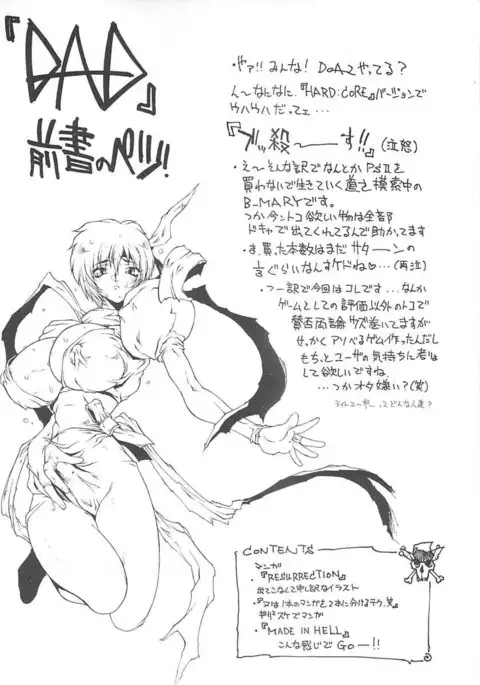 『DAD』
前書のページ!
・ヤァ!! みんな! DOA2 やってる?
ん〜なになに、『HARD:CORE』バージョンで
ウハウハだってェ…
『ブッ殺〜す!!』(泣怒)
・え〜そんな訳でなんとかPSⅡを
買わないで生きていく道を模索中の
B-MARYです。
つか今ントコ欲しい物は全部
ドキャで出てくれてるんで助かってます
・ま、買った本数はまだサターンの
ぐらいなんすケドね♡…(再泣)
・つー訳で今回はコレです…なんか
ゲームとしての評価以外のトコで
賛否両論ウズ巻いてますが
せっかくアソべるゲム作ったんだし
もちっとユーザの気持ちに
して欲しいですね
…つかオタ嫌い?(笑)
ライトユーザーってどんな人達?
CONTENTS
マンガ
・『RESURRECTION』
出てこなくて申し訳なイラスト
・『又は1本のマンガを2本に分けるテク。笑』
ギリギリズケでマンガ
・『MADE IN HELL』
こんな感じで GO—!!